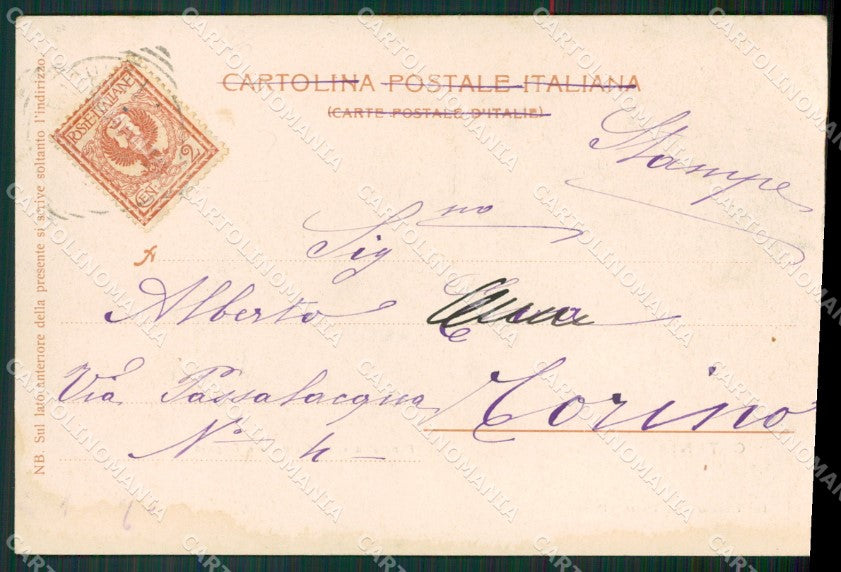 CARTOLINA POSTALE ITALIANA
(CARTE POSTALE D'ITALIE)
POSTE ITALIANE
CEN. 2
Stampe
A Sig.no
Alberto
Via Passalacqua Torino
No 4
NB. Sul lato anteriore della presente si scrive soltanto l'indirizzo.
CARTOLINOMANIA